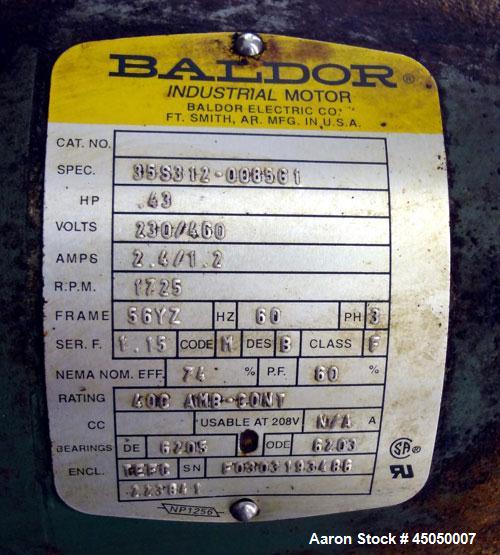 BALDOR®
INDUSTRIAL MOTOR
BALDOR ELECTRIC CO.
FT. SMITH, AR. MFG. IN U.S.A.
CAT. NO.
SPEC. 35S312-0085G1
HP .43
VOLTS 230/460
AMPS 2.4/1.2
R.P.M. 1725
FRAME 56YZ HZ 60 PH 3
SER. F. 1.15 CODE M DES B CLASS F
NEMA NOM. EFF. 74 % P.F. 60 %
RATING 40C AMB-CONT
CC USABLE AT 208V N/A A
BEARINGS DE 6205 ODE 6203
ENCL. TEFC SN F0303193486
223841
NP1256
Aaron Stock # 45050007